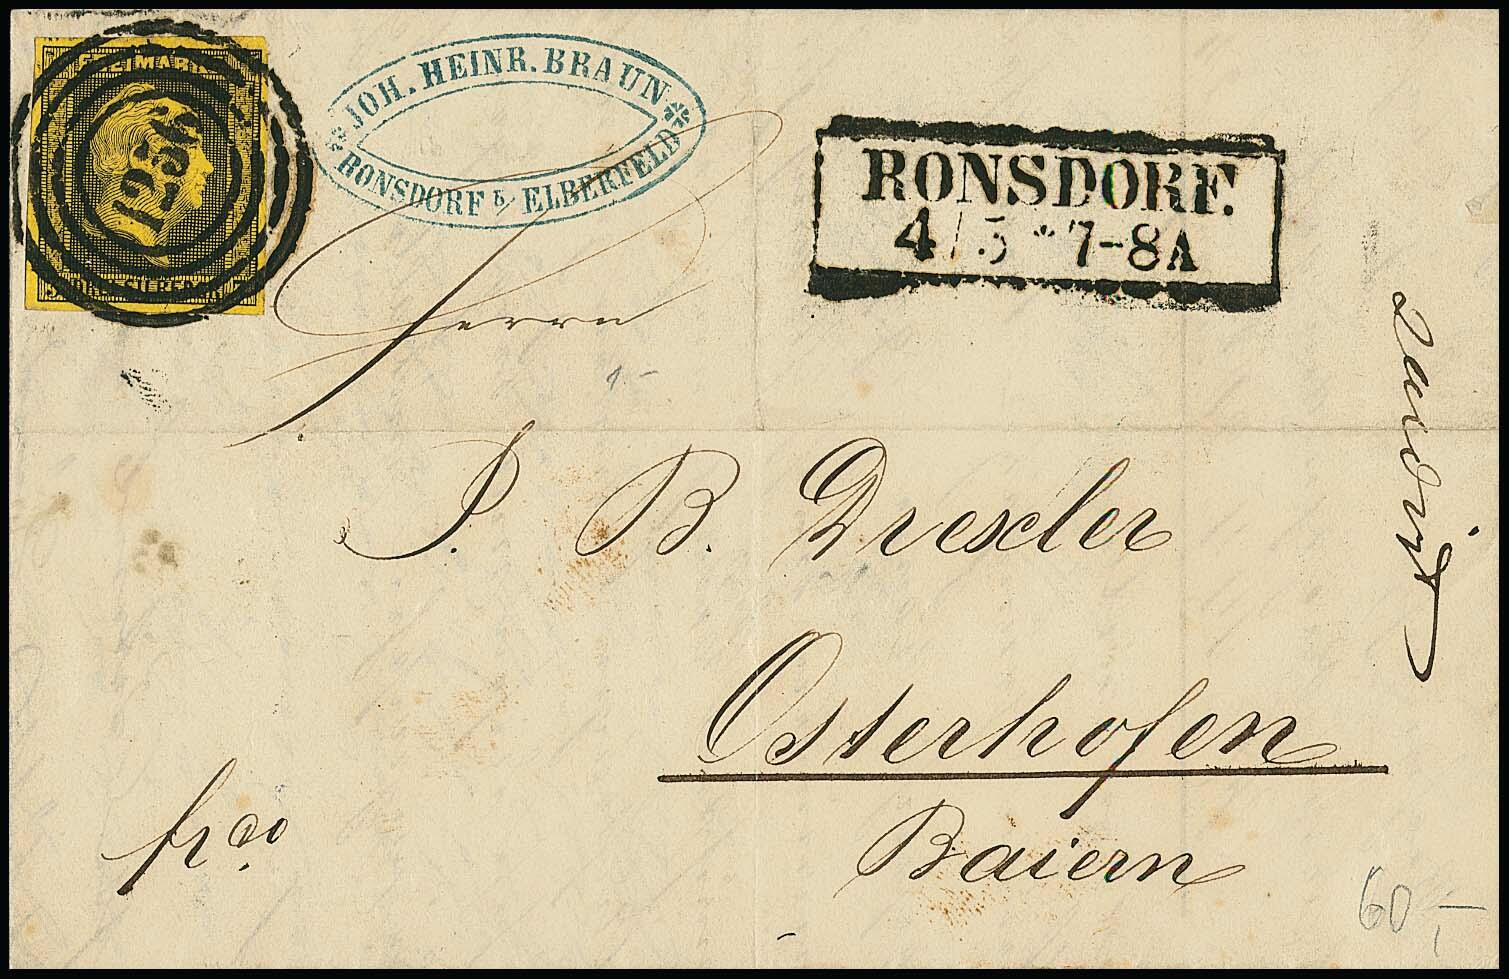 FREIMARKE
1256
JOH. HEINR. BRAUN
RONSDORF b/ ELBERFELD
RONSDORF.
4/5 * 7-8A
Herrn
J. B. Drexler
Osterhofen
Baiern
frco
60,-